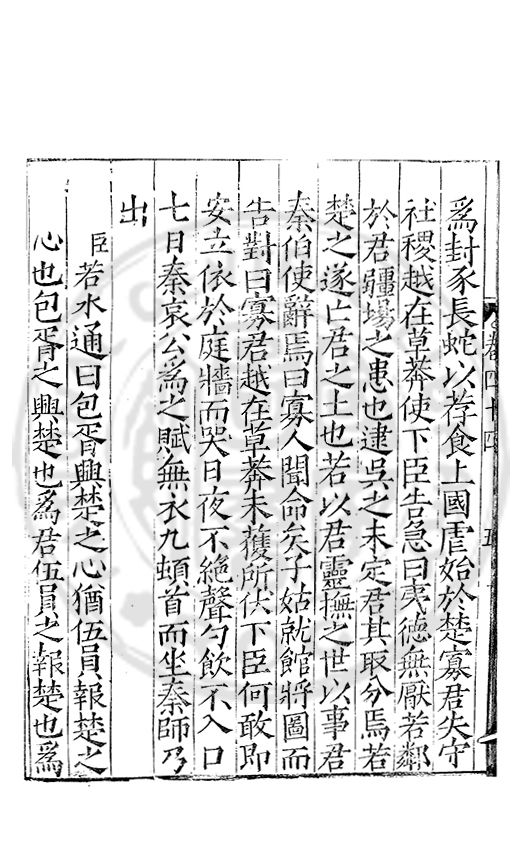 卷四十四
五
爲封豕長蛇以荐食上國虐始於楚寡君失守
社稷越在草莽使下臣告急曰夷德無厭若鄰
於君疆場之患也逮吳之未定君其取分焉若
楚之遂亡君之土也若以君靈撫之世以事君
秦伯使辭焉曰寡人聞命矣子姑就館將圖而
告對曰寡君越在草莽未獲所伏下臣何敢即
安立依於庭牆而哭日夜不絕聲勺飲不入口
七日秦哀公爲之賦無衣九頓首而坐秦師乃
出
臣若水通曰包胥興楚之心猶伍員報楚之
心也包胥之興楚也爲君伍員之報楚也爲